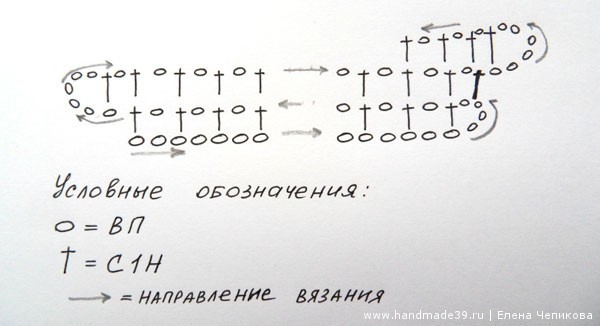 Условные обозначения:
О = ВП
† = С1Н
→ = НАПРАВЛЕНИЕ ВЯЗАНИЯ
www.handmade39.ru | Елена Чепикова